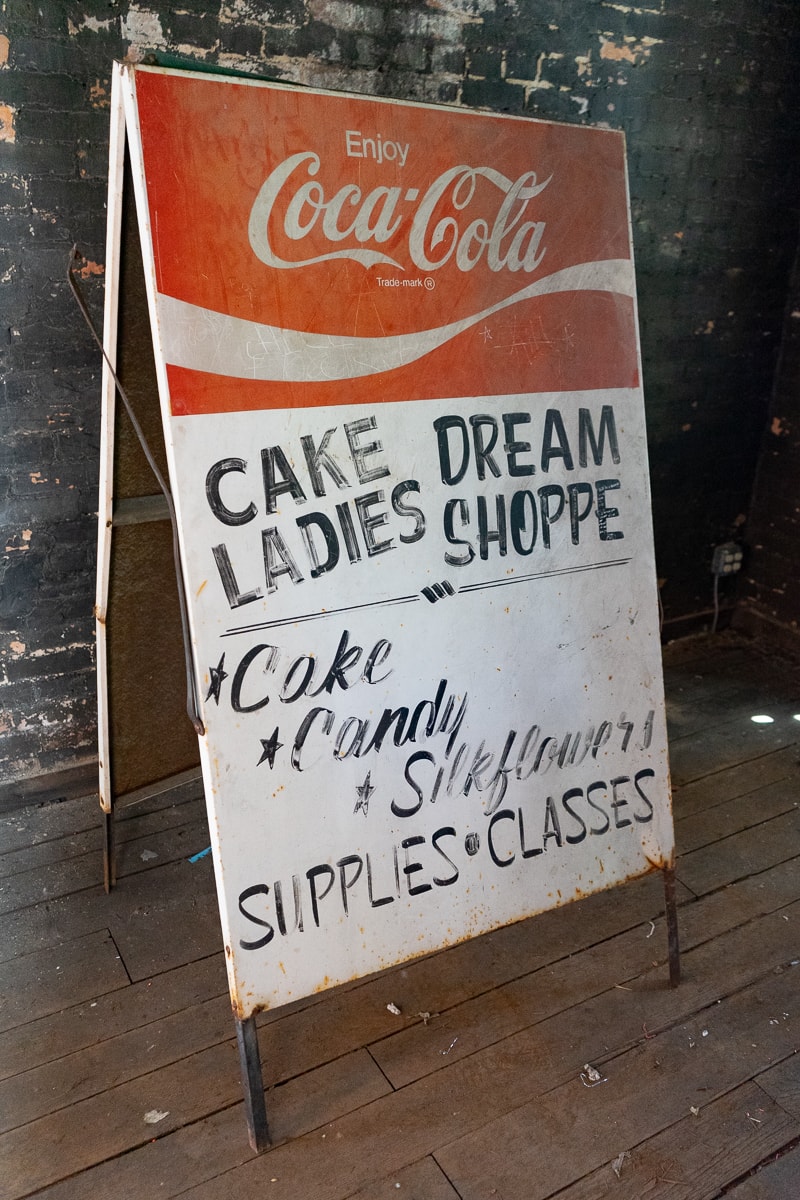 Enjoy
Coca-Cola
Trade-mark ®
CAKE DREAM
LADIES SHOPPE
★Cake
★Candy
★Silkflowers
SUPPLIES•CLASSES